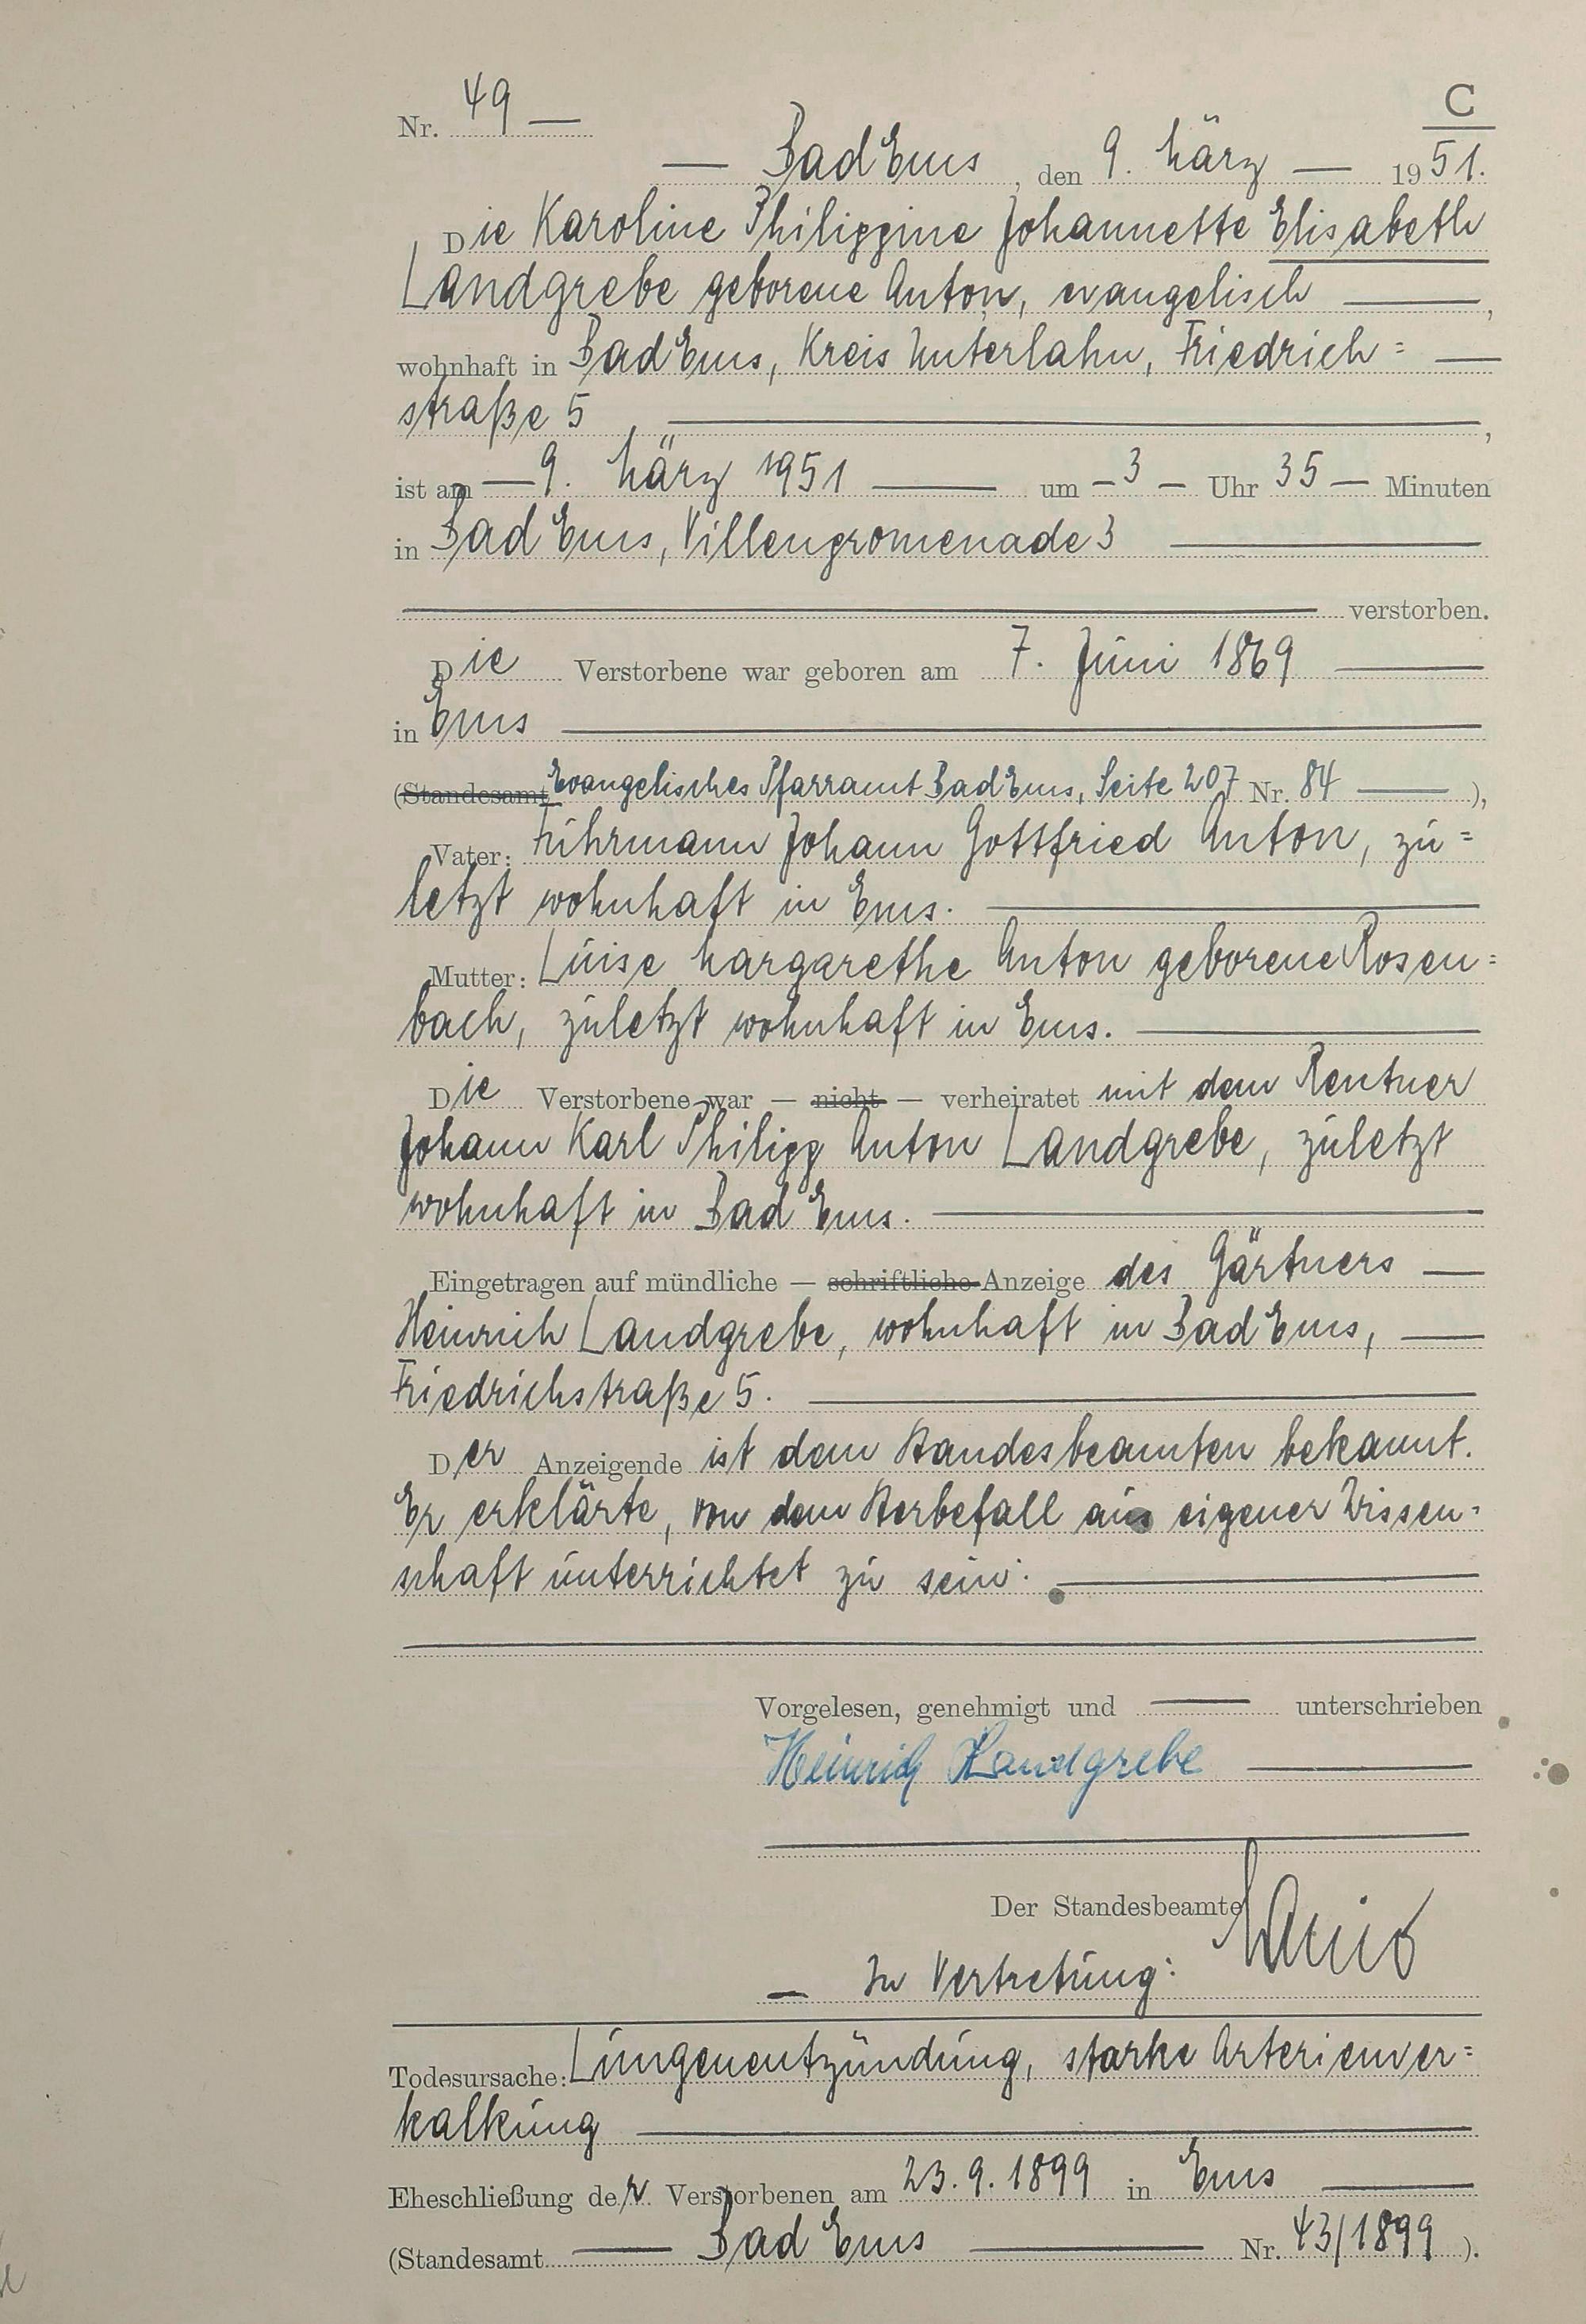 C
Nr. 49 —
— Bad Ems, den 9. März — 1951.
Die Karoline Philippine Johannette Elisabeth
Landgrebe geborene Anton, evangelisch —,
wohnhaft in Bad Ems, Kreis Unterlahn, Friedrich= —
straße 5 —,
ist am — 9. März 1951 — um — 3 — Uhr 35 — Minuten
in Bad Ems, Villenpromenade 3 —
— verstorben.
Die Verstorbene war geboren am 7. Juni 1869 —
in Ems —
(Standesamt Evangelisches Pfarramt Bad Ems, Seite 207 Nr. 84 — ),
Vater: Fuhrmann Johann Gottfried Anton, zu=
letzt wohnhaft in Ems. —
Mutter: Luise Margarethe Anton geborene Rosen=
bach, zuletzt wohnhaft in Ems. —
Die Verstorbene war — nicht — verheiratet mit dem Rentner
Johann Karl Philipp Anton Landgrebe, zuletzt
wohnhaft in Bad Ems. —
Eingetragen auf mündliche — schriftliche Anzeige des Gärtners —
Heinrich Landgrebe, wohnhaft in Bad Ems, —
Friedrichstraße 5. —
Der Anzeigende ist dem Standesbeamten bekannt.
Er erklärte, von dem Sterbefall aus eigener Wissen=
schaft unterrichtet zu sein. —
Vorgelesen, genehmigt und — unterschrieben
Heinrich Landgrebe —
Der Standesbeamte
— In Vertretung:
Todesursache: Lungenentzündung, starke Arterienver=
kalkung —
Eheschließung der Verstorbenen am 23.9.1899 in Ems —
(Standesamt — Bad Ems — Nr. 43/1899 ).